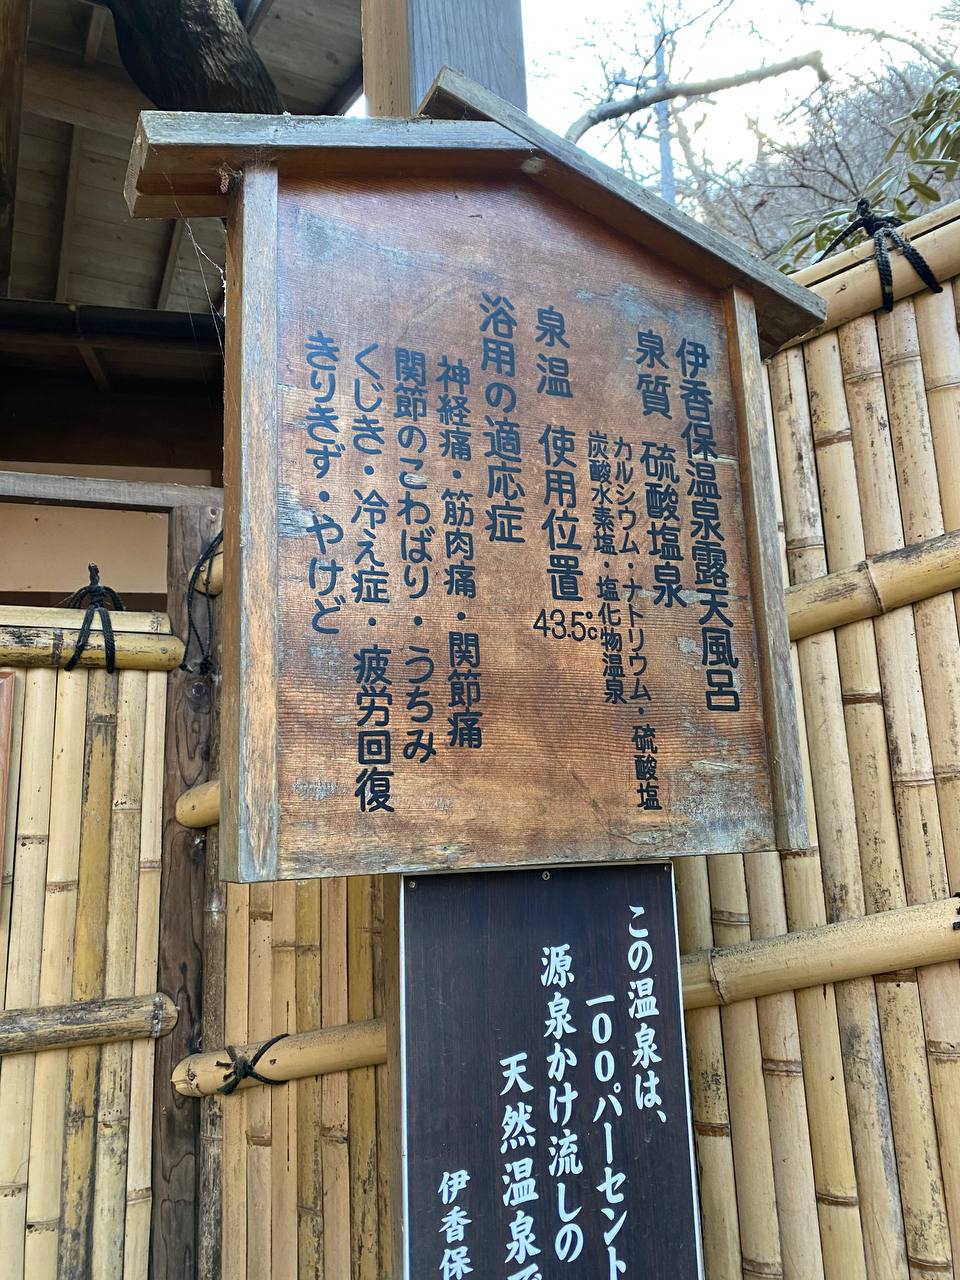 伊香保温泉露天風呂
泉質 硫酸塩泉
カルシウム・ナトリウム・硫酸塩
炭酸水素塩・塩化物温泉
泉温 使用位置 43.5℃
浴用の適応症
神経痛・筋肉痛・関節痛
関節のこわばり・うちみ
くじき・冷え症・疲労回復
きりきず・やけど
この温泉は、
一〇〇パーセント
源泉かけ流しの
天然温泉で
伊香保